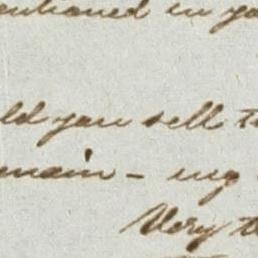 entioned in yo
ld you sell t
main - my
Very t